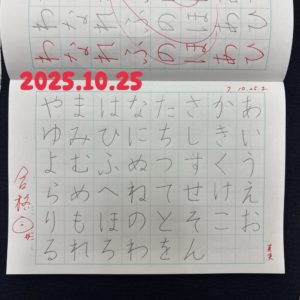 2025.10.25
あいうえお
かきくけこ
さしすせそ
たちつてと
なにぬねの
はひふへほ
まみむめも
やゆよらり
るれろわをん
合格